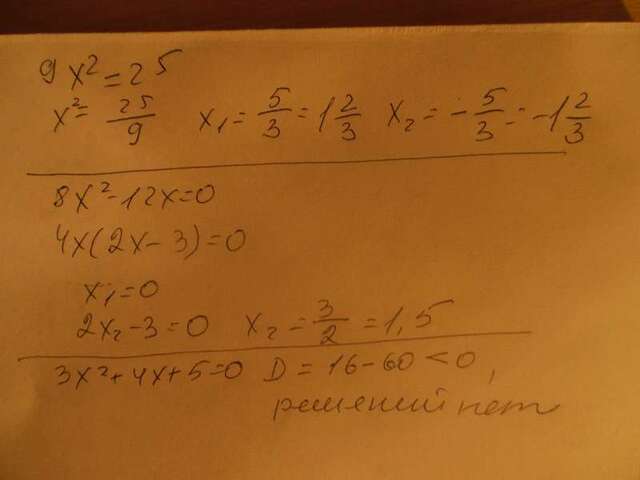 9x² = 25
x² = 25/9 x₁ = 5/3 = 1 2/3 x₂ = -5/3 = -1 2/3
8x² - 12x = 0
4x(2x - 3) = 0
x₁ = 0
2x₂ - 3 = 0 x₂ = 3/2 = 1,5
3x² + 4x + 5 = 0 D = 16 - 60 < 0,
решений нет